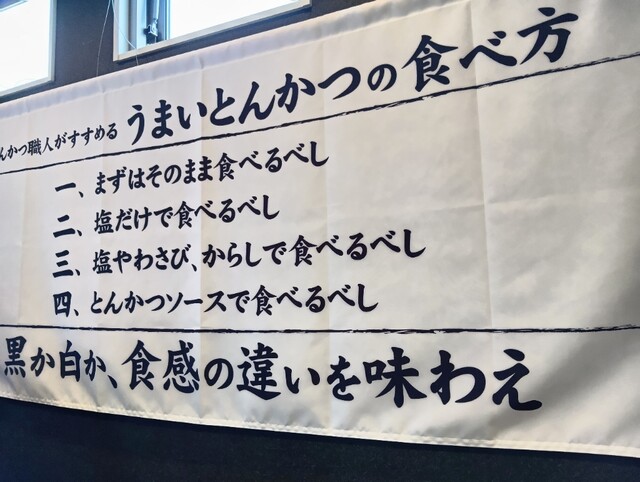 んかつ職人がすすめる うまいとんかつの食べ方
一、まずはそのまま食べるべし
二、塩だけで食べるべし
三、塩やわさび、からしで食べるべし
四、とんかつソースで食べるべし
黒か白か、食感の違いを味わえ